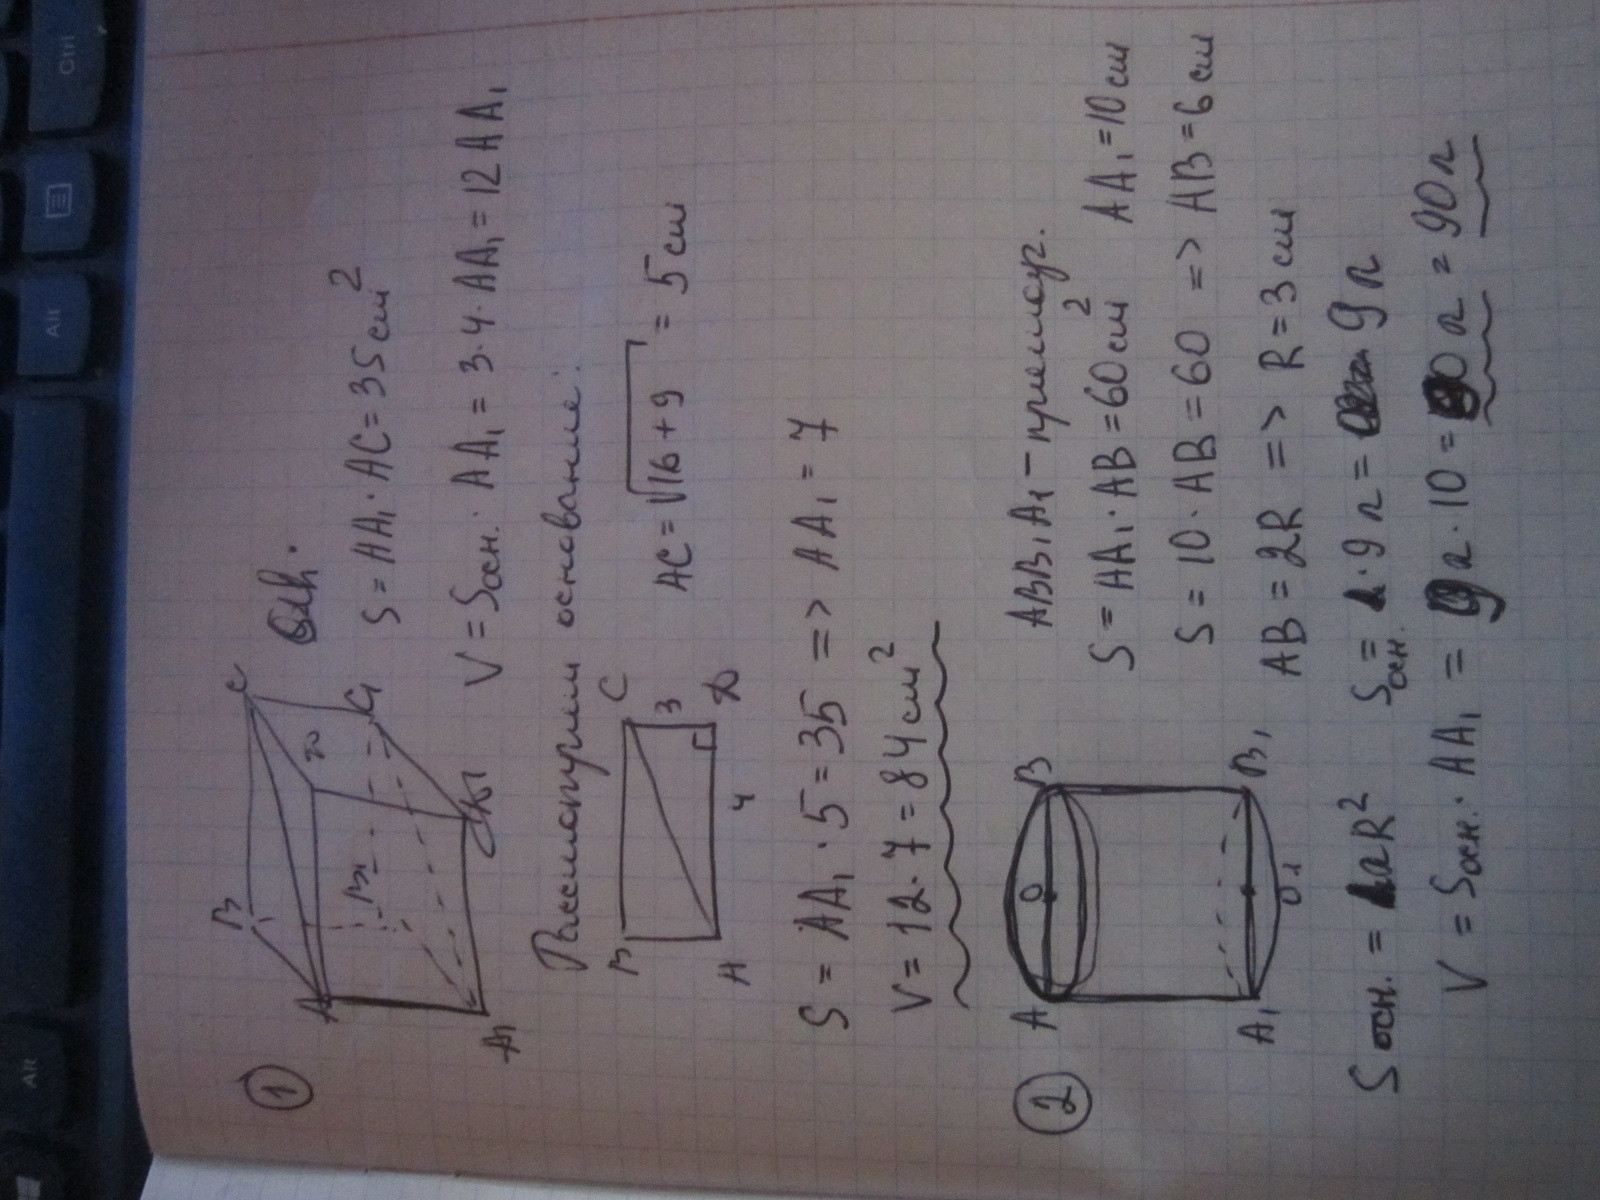 ①
B
C
A
D
B₁
C₁
A₁
D₁
S = AA₁ · AC = 35 см²
V = Sосн. · AA₁ = 3 · 4 · AA₁ = 12 AA₁
Рассмотрим основание:
B C
3
A 4 D
AC = √16 + 9 = 5 см
S = AA₁ · 5 = 35 => AA₁ = 7
V = 12 · 7 = 84 см²
②
A O B
A₁ O₁ B₁
ABB₁A₁ – прямоуг.
S = AA₁ · AB = 60 см² AA₁ = 10 см
S = 10 · AB = 60 => AB = 6 см
AB = 2R => R = 3 см
Sосн. = πR² Sосн. = 9π = 9π
V = Sосн. · AA₁ = 9π · 10 = 90π = 90π
Ctrl
Alt
Alt